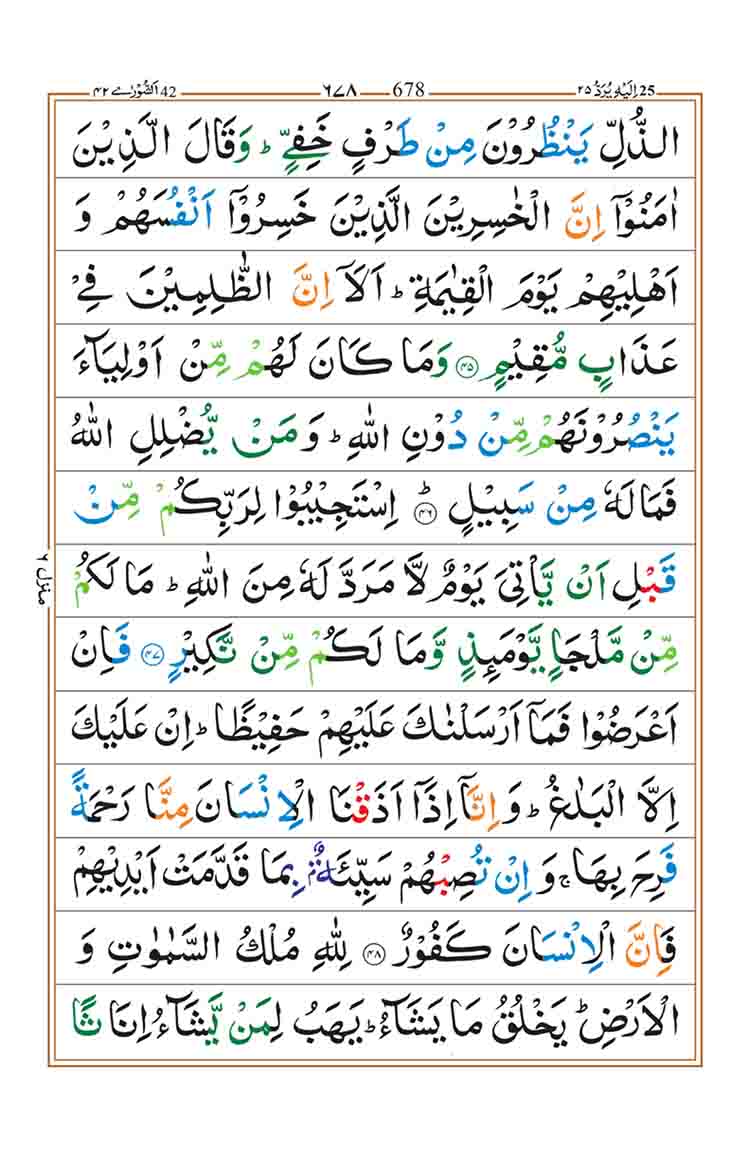 اَلشُّوْرٰے ٤٢ 42 ٦٧٨ 678 اِلَيْهِ يُرَدُّ ٢٥ 25
الذُّلِّ يَنْظُرُوْنَ مِنْ طَرْفٍ خَفِيٍّ ؕ وَقَالَ الَّذِيْنَ
اٰمَنُوْۤا اِنَّ الْخٰسِرِيْنَ الَّذِيْنَ خَسِرُوْۤا اَنْفُسَهُمْ وَ
اَهْلِيْهِمْ يَوْمَ الْقِيٰمَةِ ؕ اَلَاۤ اِنَّ الظّٰلِمِيْنَ فِيْ
عَذَابٍ مُّقِيْمٍ ﴿٤٥﴾ وَمَا كَانَ لَهُمْ مِّنْ اَوْلِيَآءَ
يَنْصُرُوْنَهُمْ مِّنْ دُوْنِ اللّٰهِ ؕ وَمَنْ يُّضْلِلِ اللّٰهُ
فَمَا لَهٗ مِنْ سَبِيْلٍ ﴿٤٦﴾ؕ اِسْتَجِيْبُوْا لِرَبِّكُمْ مِّنْ
قَبْلِ اَنْ يَّاْتِيَ يَوْمٌ لَّا مَرَدَّ لَهٗ مِنَ اللّٰهِ ؕ مَا لَكُمْ
مِّنْ مَّلْجَاٍ يَّوْمَىِٕذٍ وَّمَا لَكُمْ مِّنْ نَّكِيْرٍ ﴿٤٧﴾ فَاِنْ
اَعْرَضُوْا فَمَاۤ اَرْسَلْنٰكَ عَلَيْهِمْ حَفِيْظًا ؕ اِنْ عَلَيْكَ
اِلَّا الْبَلٰغُ ؕ وَ اِنَّاۤ اِذَاۤ اَذَقْنَا الْاِنْسَانَ مِنَّا رَحْمَةً
فَرِحَ بِهَا ۚ وَ اِنْ تُصِبْهُمْ سَيِّئَةٌۢ بِمَا قَدَّمَتْ اَيْدِيْهِمْ
فَاِنَّ الْاِنْسَانَ كَفُوْرٌ ﴿٤٨﴾ لِلّٰهِ مُلْكُ السَّمٰوٰتِ وَ
الْاَرْضِ ؕ يَخْلُقُ مَا يَشَآءُ ؕ يَهَبُ لِمَنْ يَّشَآءُ اِنَاثًا
منزل ٦